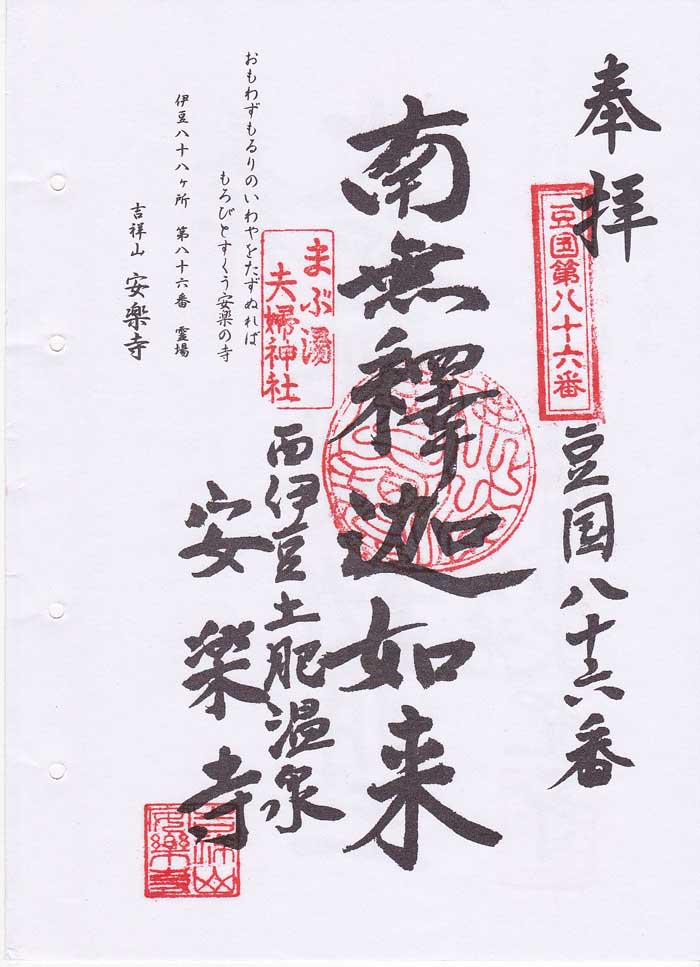 奉拝
豆国第八十六番
豆国八十六番
南無釋迦如来
まぶ湯
夫婦神社
西伊豆土肥温泉
安楽寺
おもわずもるりのいわやをたずぬれば
もろびとすくう安楽の寺
伊豆八十八ヶ所 第八十六番 霊場
吉祥山 安楽寺
吉祥山
安樂寺